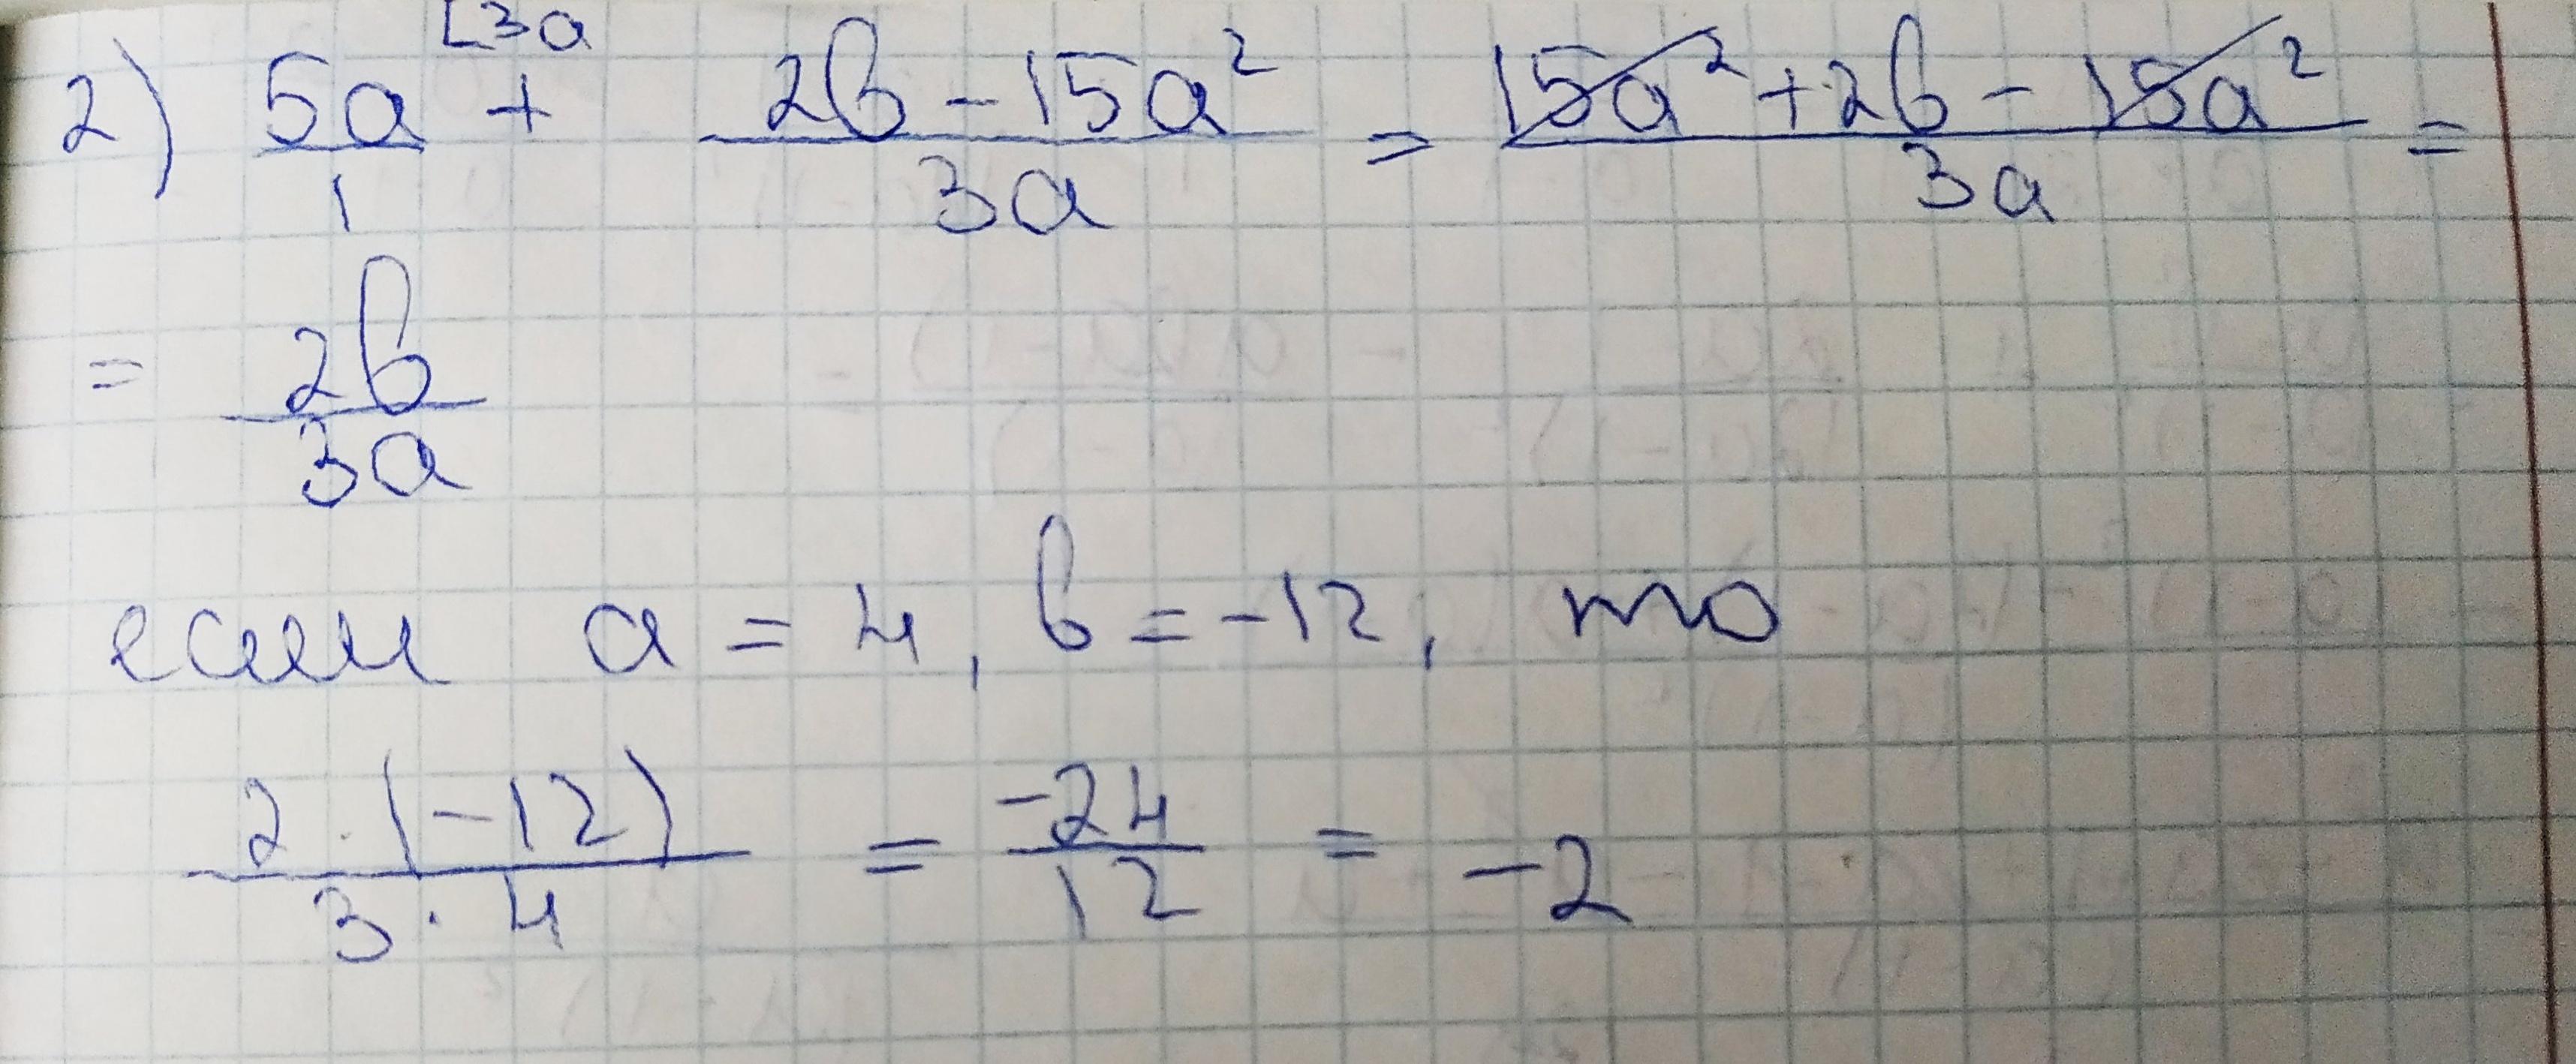 2) 5a/1 [3a + (2b - 15a²)/3a = (15a² + 2b - 15a²)/3a =
= 2b/3a
если a = 4, b = -12, то
(2 · (-12))/(3 · 4) = -24/12 = -2